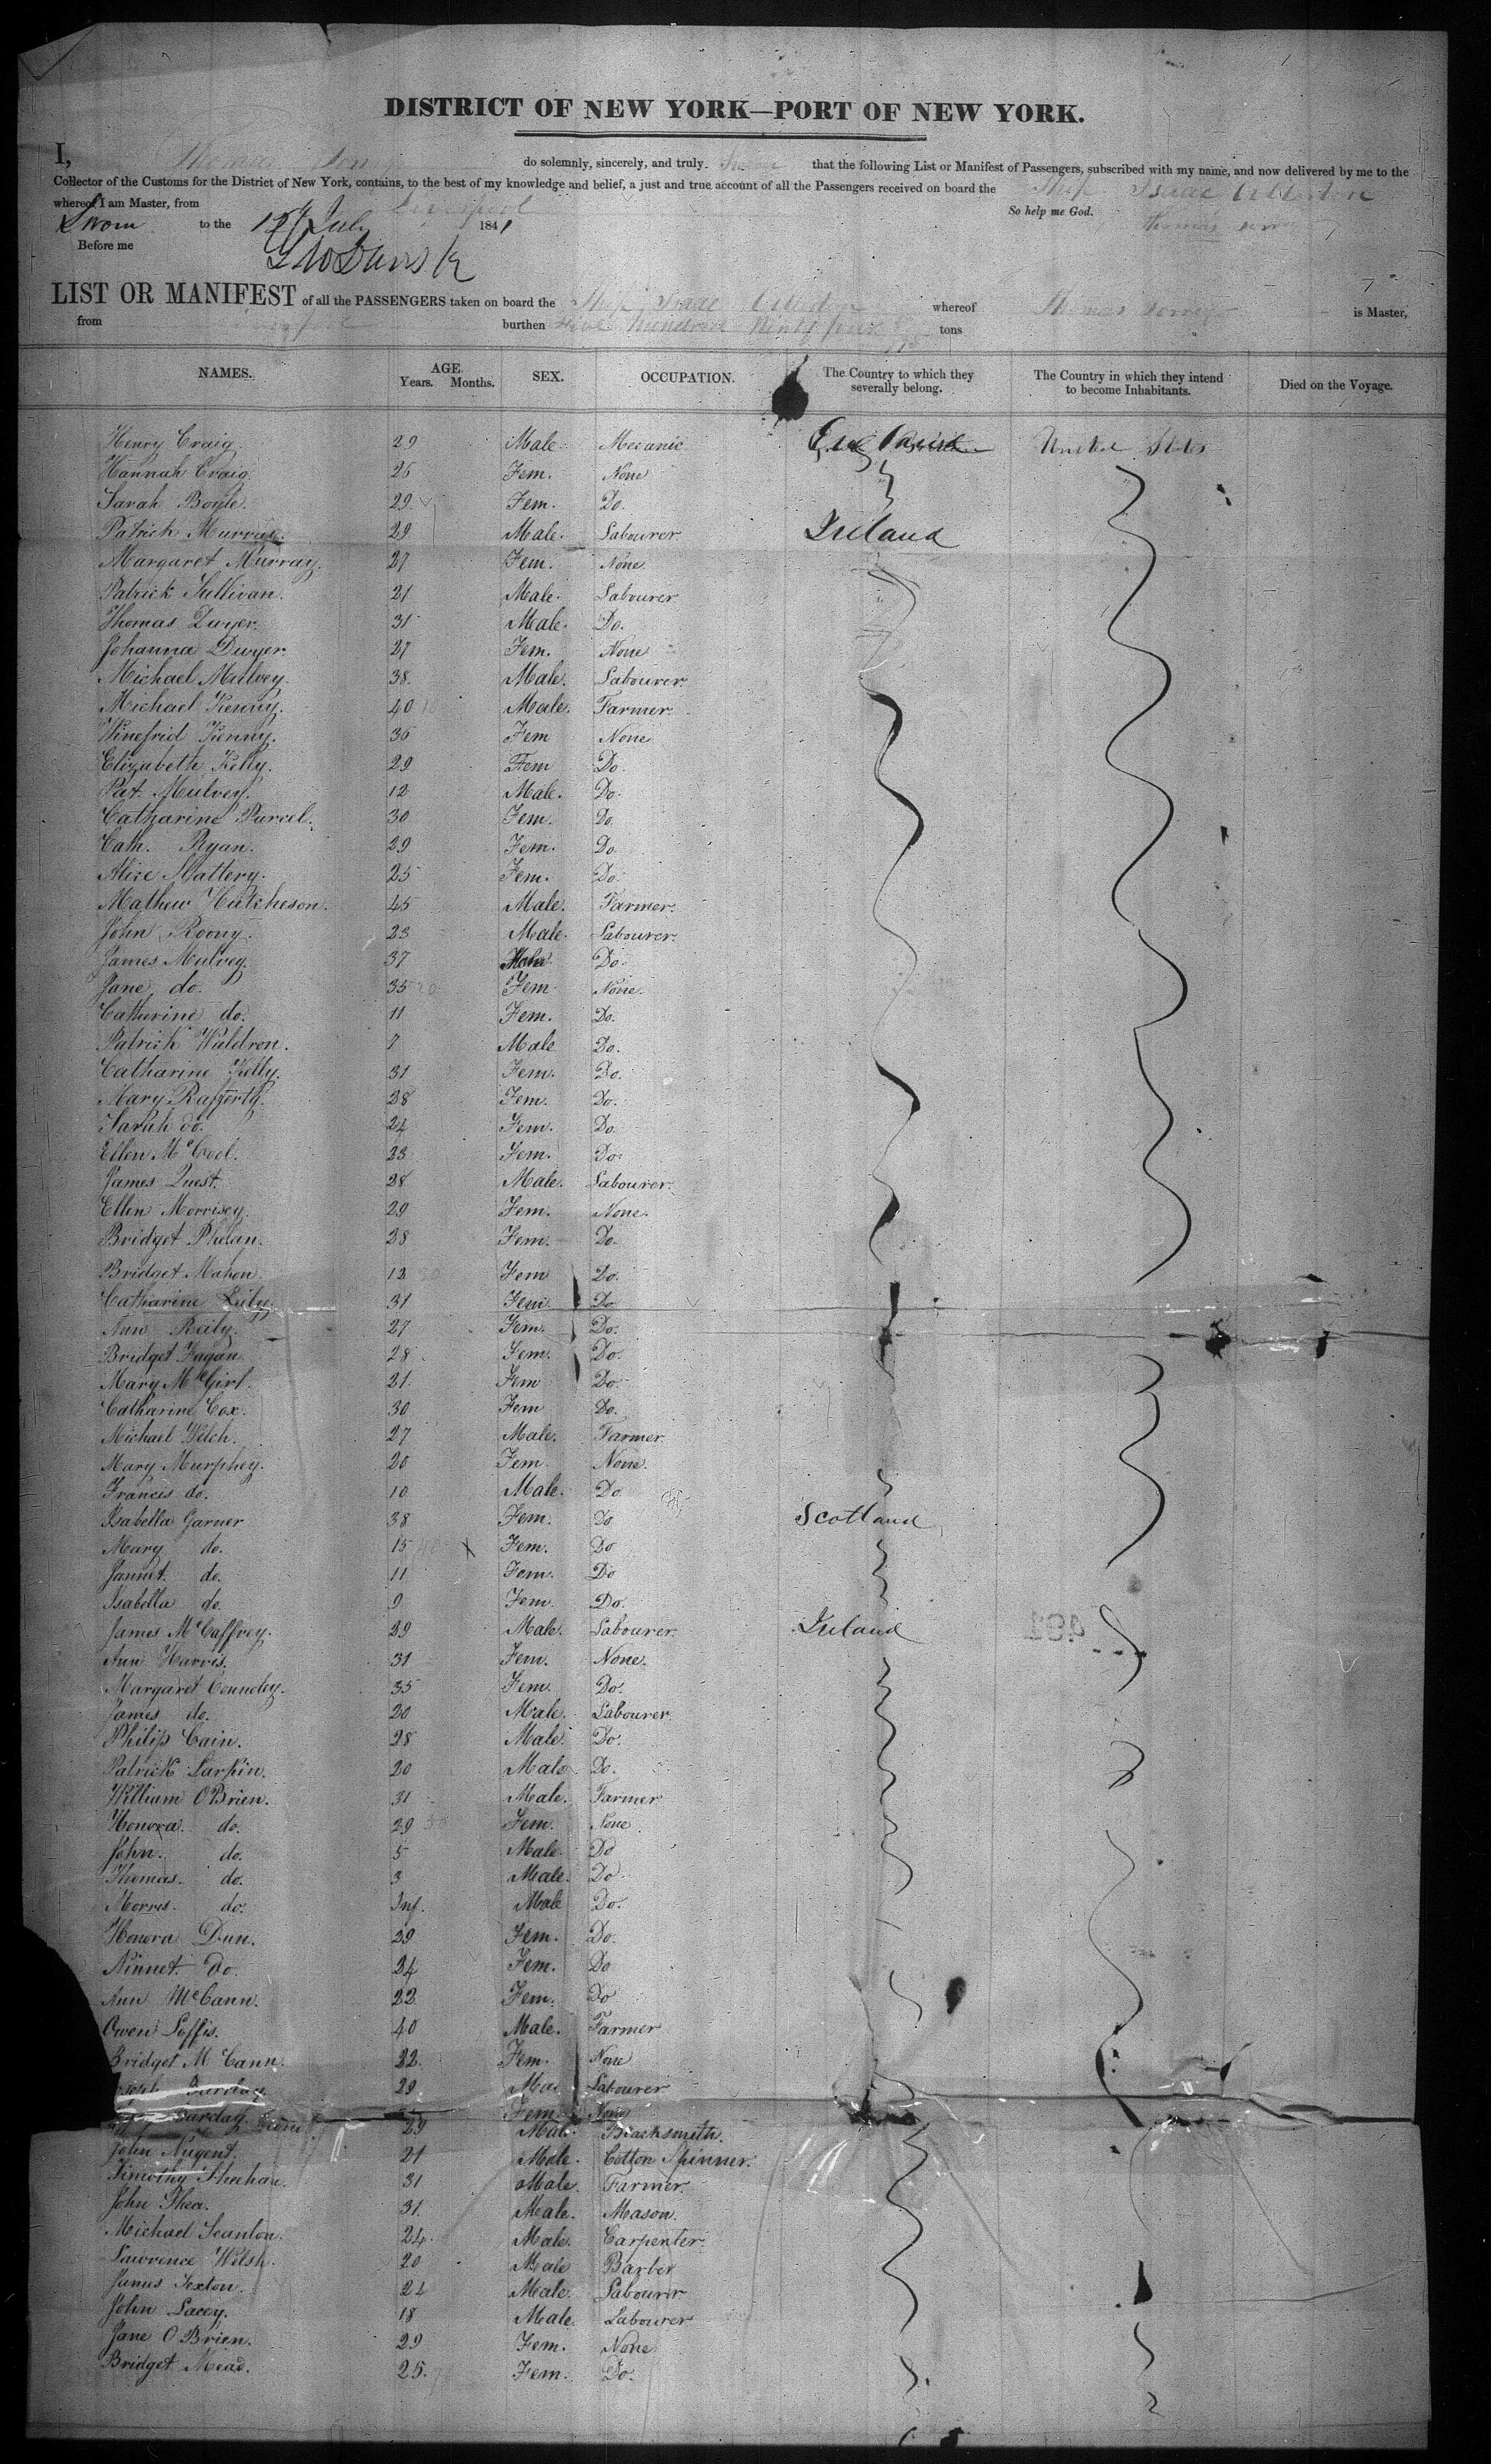 DISTRICT OF NEW YORK—PORT OF NEW YORK.
I, Thomas do solemnly, sincerely, and truly that the following List or Manifest of Passengers, subscribed with my name, and now delivered by me to the
Collector of the Customs for the District of New York, contains, to the best of my knowledge and belief, a just and true account of all the Passengers received on board the Ship Isaac Allerton
whereof I am Master, from Liverpool So help me God.
Sworn to the 15 July 1841 Thomas
Before me
LIST OR MANIFEST of all the PASSENGERS taken on board the Ship Isaac Allerton whereof Thomas is Master,
from Liverpool burthen Five hundred Ninety four tons
NAMES. AGE Years. Months. SEX. OCCUPATION. The Country to which they severally belong. The Country in which they intend to become Inhabitants. Died on the Voyage.
Henry Craig. 29 Male Mecanic United States
Hannah Craig. 25 Fem. None
Sarah Boyle. 29 Fem. Do.
Patrick Murray. 29 Male. Labourer Ireland
Margaret Murray. 27 Fem. None.
Patrick Sullivan. 21 Male. Labourer
Thomas Dwyer. 31 Male. Do.
Johanna Dwyer. 27 Fem. None
Michael Mulvey. 38. Male. Labourer.
Michael Kenny. 40 Male. Farmer.
Winefrid Kenny. 36 Fem None
Elizabeth Kelly. 29 Fem Do.
Pat. Mulvey. 12 Male. Do.
Catharine Purcel. 30 Fem. Do.
Cath. Ryan. 29 Fem. Do.
Alice Slattery. 25 Fem. Do.
Mathew Hutcheson. 45 Male. Farmer.
John Roony. 23 Male. Labourer.
James Mulvey. 37 Male Do.
Jane do. 35 Fem None.
Catherine do. 11 Fem. Do.
Patrick Waldron. 7 Male Do.
Catharine Kelly. 31 Fem. Do.
Mary Rafferty. 28 Fem. Do.
Sarah do. 24 Fem. Do.
Ellen McCool. 23 Fem. Do.
James Quest. 28 Male. Labourer.
Ellen Morrisey. 29 Fem. None.
Bridget Phelan. 28 Fem. Do.
Bridget Mahon. 12 Fem Do.
Catharine 31 Fem Do
Ann Reily. 27 Fem. Do.
Bridget Fagan 28 Fem. Do.
Mary McGirl. 21. Fem Do.
Catharine Cox. 30 Fem Do.
Michael Welch. 27 Male. Farmer.
Mary Murphey. 20 Fem. None.
Francis do. 10 Male. Do
Isabella Garner 38 Fem. Do Scotland
Mary do. 15 Fem. Do
Jannet. do. 11 Fem. Do
Isabella do. 9 Fem. Do.
James McCaffrey. 29 Male. Labourer. Ireland
Ann Harris. 31 Fem. None.
Margaret Connoley. 35 Fem. Do.
James do. 20 Male. Labourer
Philip Cain. 28 Male. Do.
Patrick Larkin. 20 Male Do.
William OBrien. 31 Male. Farmer
Honora. do. 29 Fem. None
John. do. 5 Male. Do
Thomas. do. 3 Male. Do
Morris. do. Inf. Male Do.
Honora Dun. 29 Fem. Do.
Ninnet. Do. 24 Fem. Do
Ann McCann. 22 Fem. Do
Owen Loffis. 40 Male. Farmer
Bridget McCann. 22. Fem. None
29 Mal Labourer
Fem. None
29 Male. Blacksmith.
John Nugent. 21 Male. Cotton Spinner.
Timothy Sheehan. 31 Male. Farmer
John Shea. 31. Male. Mason.
Michael Scanlon. 24. Male. Carpenter.
Lawrence Welsh. 20 Male Barber
James Sexton. 24 Male. Labourer
John Lacey. 18 Male. Labourer
Jane OBrien. 29 Fem. None.
Bridget Mead. 25. Fem. Do.